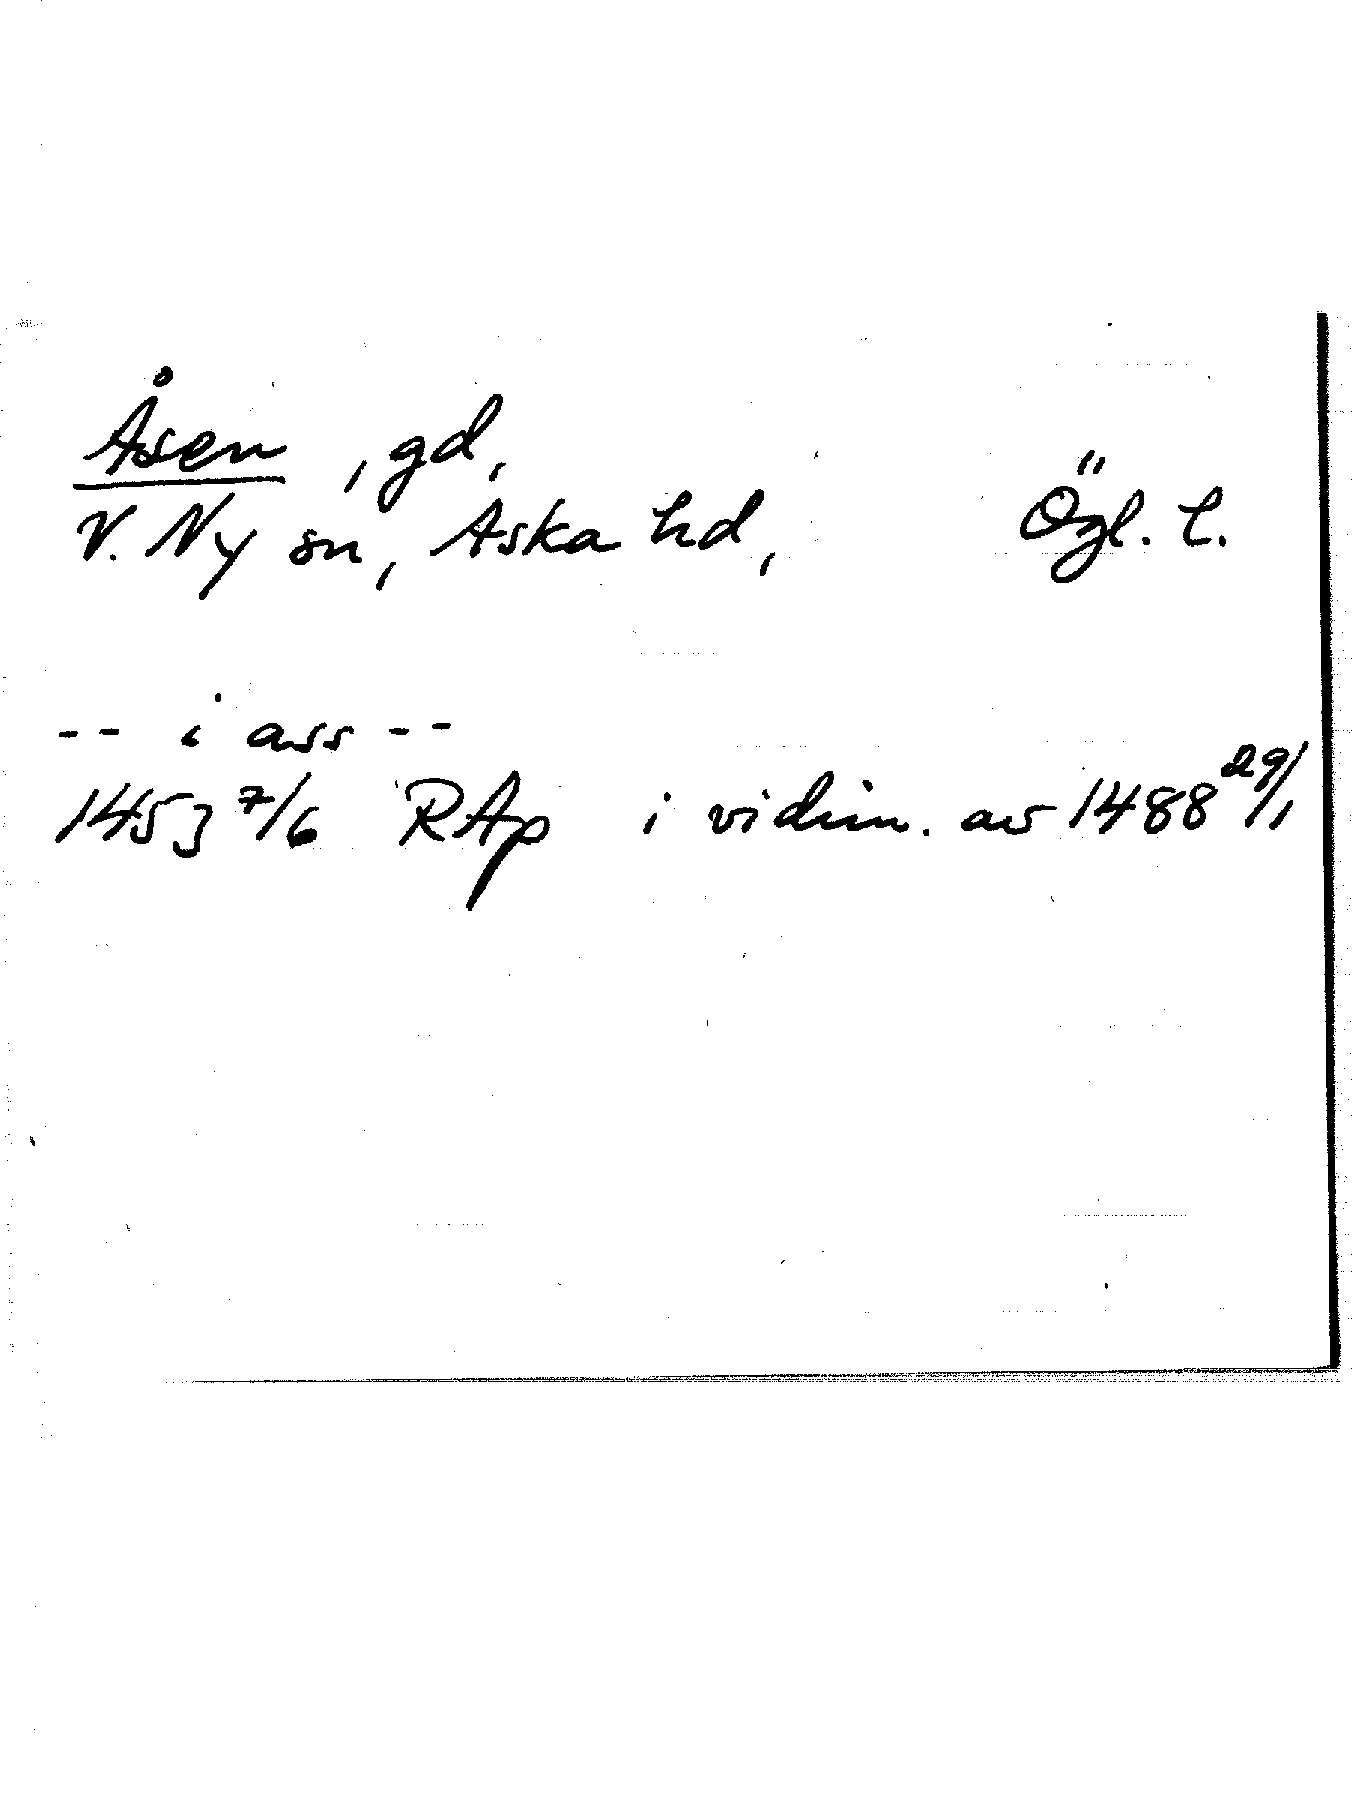 Åsen, gd,
V. Ny sn, Aska hd, Ögl. l.
-- i ass --
1453 7/6 RAp i vidim. av 1488 29/1